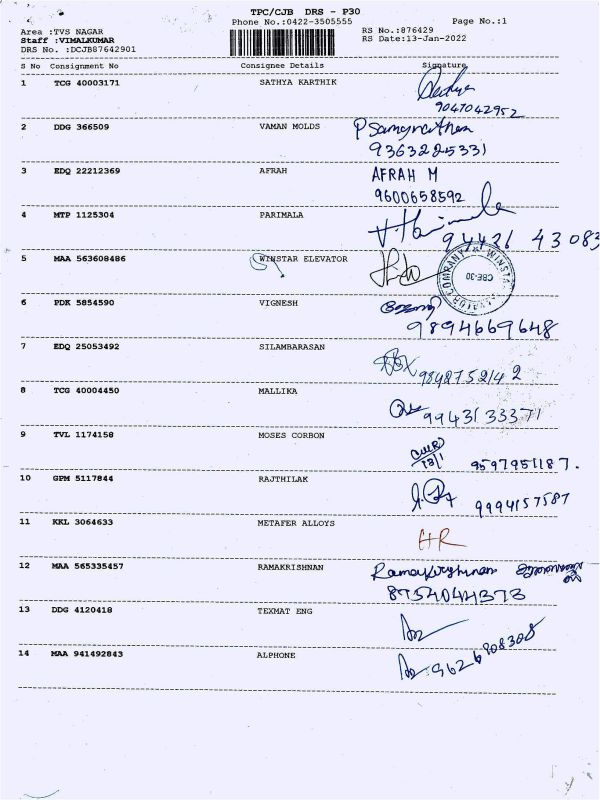 TPC/CJB DRS - P30
Phone No.:0422-3505555 Page No.:1
Area :TVS NAGAR RS No.:876429
Staff :VIMALKUMAR RS Date:13-Jan-2022
DRS No. :DCJB87642901
S No Consignment No Consignee Details Signature
1 TCG 40003171 SATHYA KARTHIK
9047042952
2 DDG 366509 VAMAN MOLDS
9363225331
3 EDQ 22212369 AFRAH AFRAH M
9600658592
4 MTP 1125304 PARIMALA
94426 43083
5 MAA 563608486 WINSTAR ELEVATOR
CBE-30
6 PDK 5854590 VIGNESH
9894669648
7 EDQ 25053492 SILAMBARASAN
9848752142
8 TCG 40004450 MALLIKA
9943133371
9 TVL 1174158 MOSES CORBON
13/1 9597951187.
10 GPM 5117844 RAJTHILAK
9994157587
11 KKL 3064633 METAFER ALLOYS
HR
12 MAA 565335457 RAMAKRISHNAN
8754044373
13 DDG 4120418 TEXMAT ENG
14 MAA 941492843 ALPHONE
9626808308